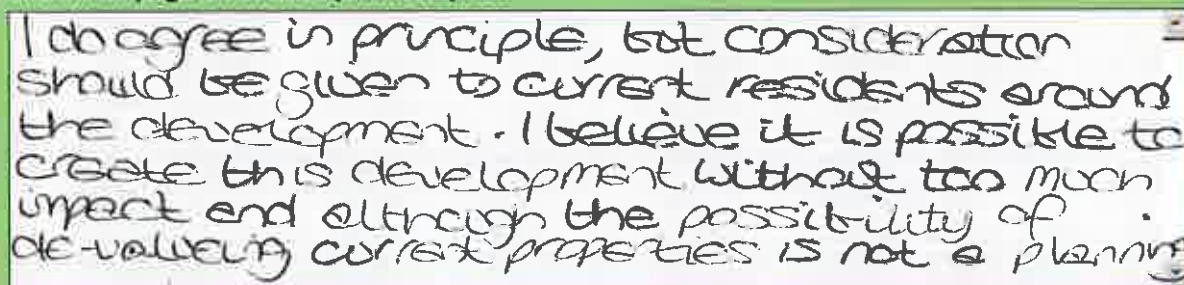 I do agree in principle, but consideration
should be given to current residents around
the development. I believe it is possible to
create this development without too much
impact and although the possibility of
de-valueing current properties is not a planning